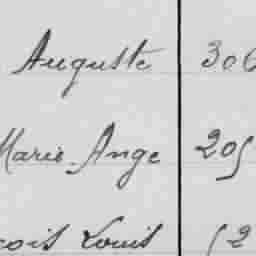 Auguste 306
Marie-Ange 205
çois Louis 52